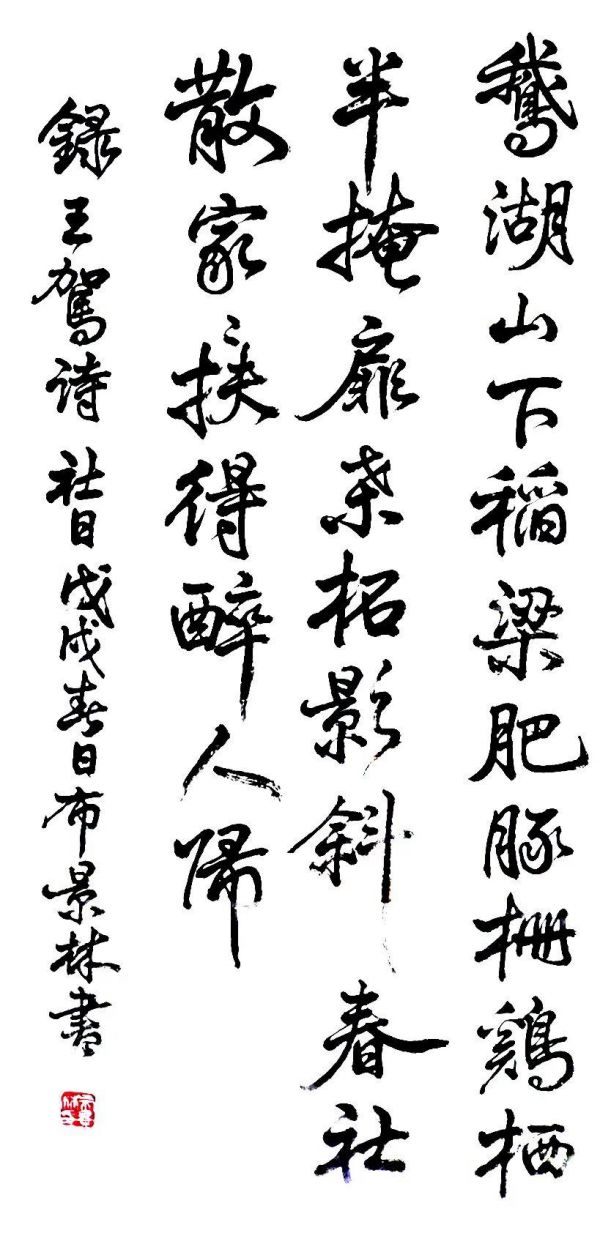 鵝湖山下稻梁肥豚柵鷄栖
半掩扉桑柘影斜春社
散家々扶得醉人歸
録王駕诗社日戊戌春日布景林書